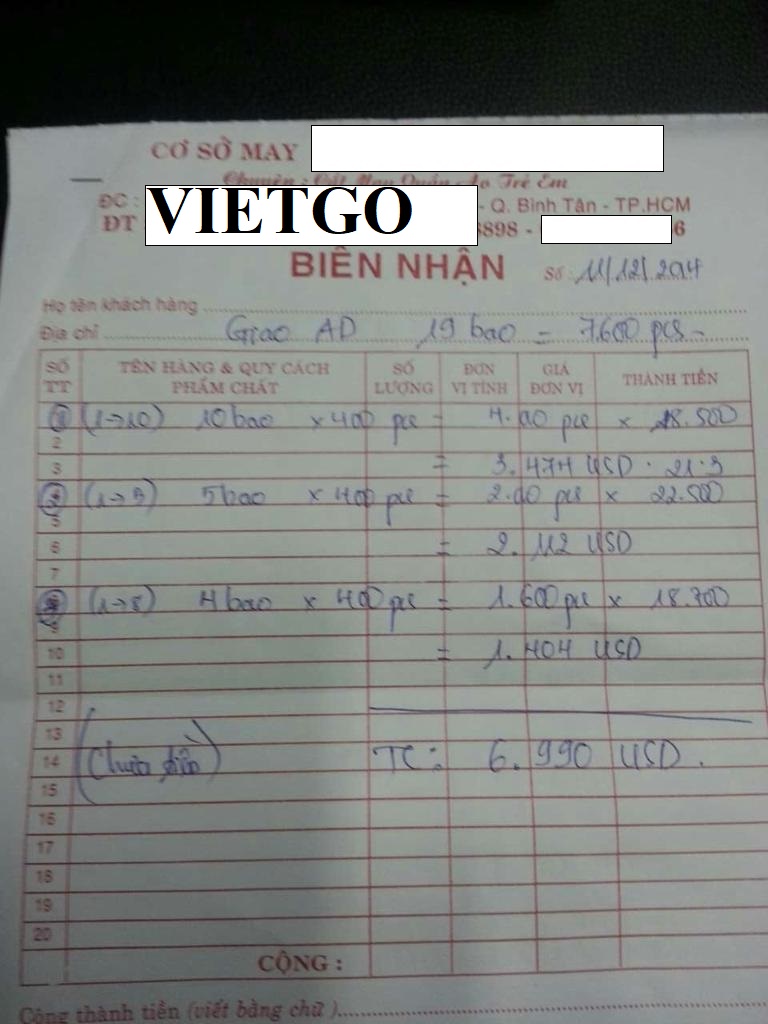 CƠ SỞ MAY
Chuyên : Cắt May Quần Áo Trẻ Em
ĐC : VIETGO - Q. Bình Tân - TP.HCM
ĐT 8898 - 6
BIÊN NHẬN Số : 11/12/2014
Họ tên khách hàng
Địa chỉ Giao AD 19 bao = 7.600 pcs -
SỐ TT TÊN HÀNG & QUY CÁCH PHẨM CHẤT SỐ LƯỢNG ĐƠN VỊ TÍNH GIÁ ĐƠN VỊ THÀNH TIỀN
1 (1→10) 10 bao x 400 pcs = pcs x 18.500
2
3 = 3.474 USD. 21.3
(1→5) 5 bao x 400 pcs = pcs x 22.500
5
6 = 2.112 USD
7
(1→8) 4 bao x 400 pcs = 1.600 pcs x 18.700
9
10 = 1.404 USD
11
12
13
14 TC: 6.990 USD.
15
16
17
18
19
20
CỘNG :
Cộng thành tiền (viết bằng chữ)